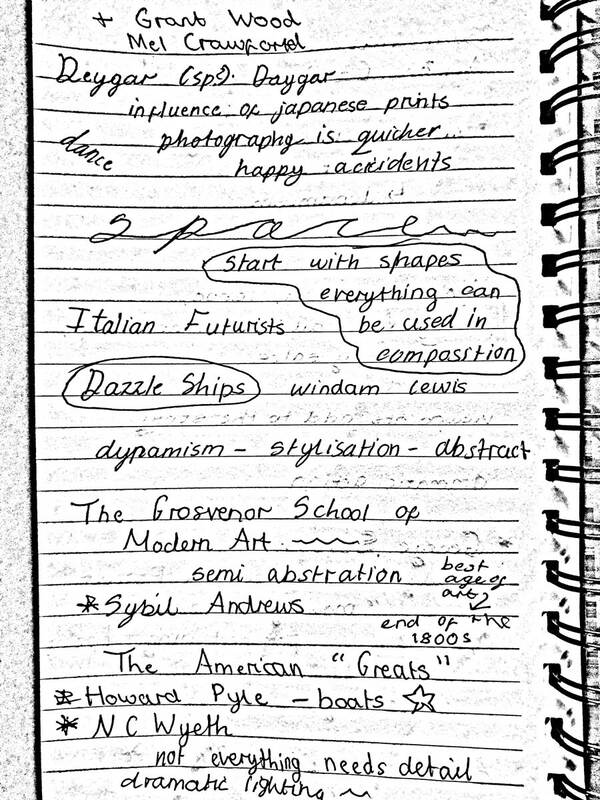 + Grant Wood
Mel Crawford
Deygar (sp?). Daygar
influence of japanese prints
photography is quicker...
dance
happy accidents
space
start with shapes
everything can
Italian Futurists
be used in
compasition
Dazzle Ships windam lewis
dynamism - stylisation - abstract
The Grosvenor School of
Modern Art
semi abstration
best
age of
art?
* Sybil Andrews
end of the
1800s
The American "Greats"
* Howard Pyle - boats ☆
* N C Wyeth
not everything needs detail
dramatic lighting